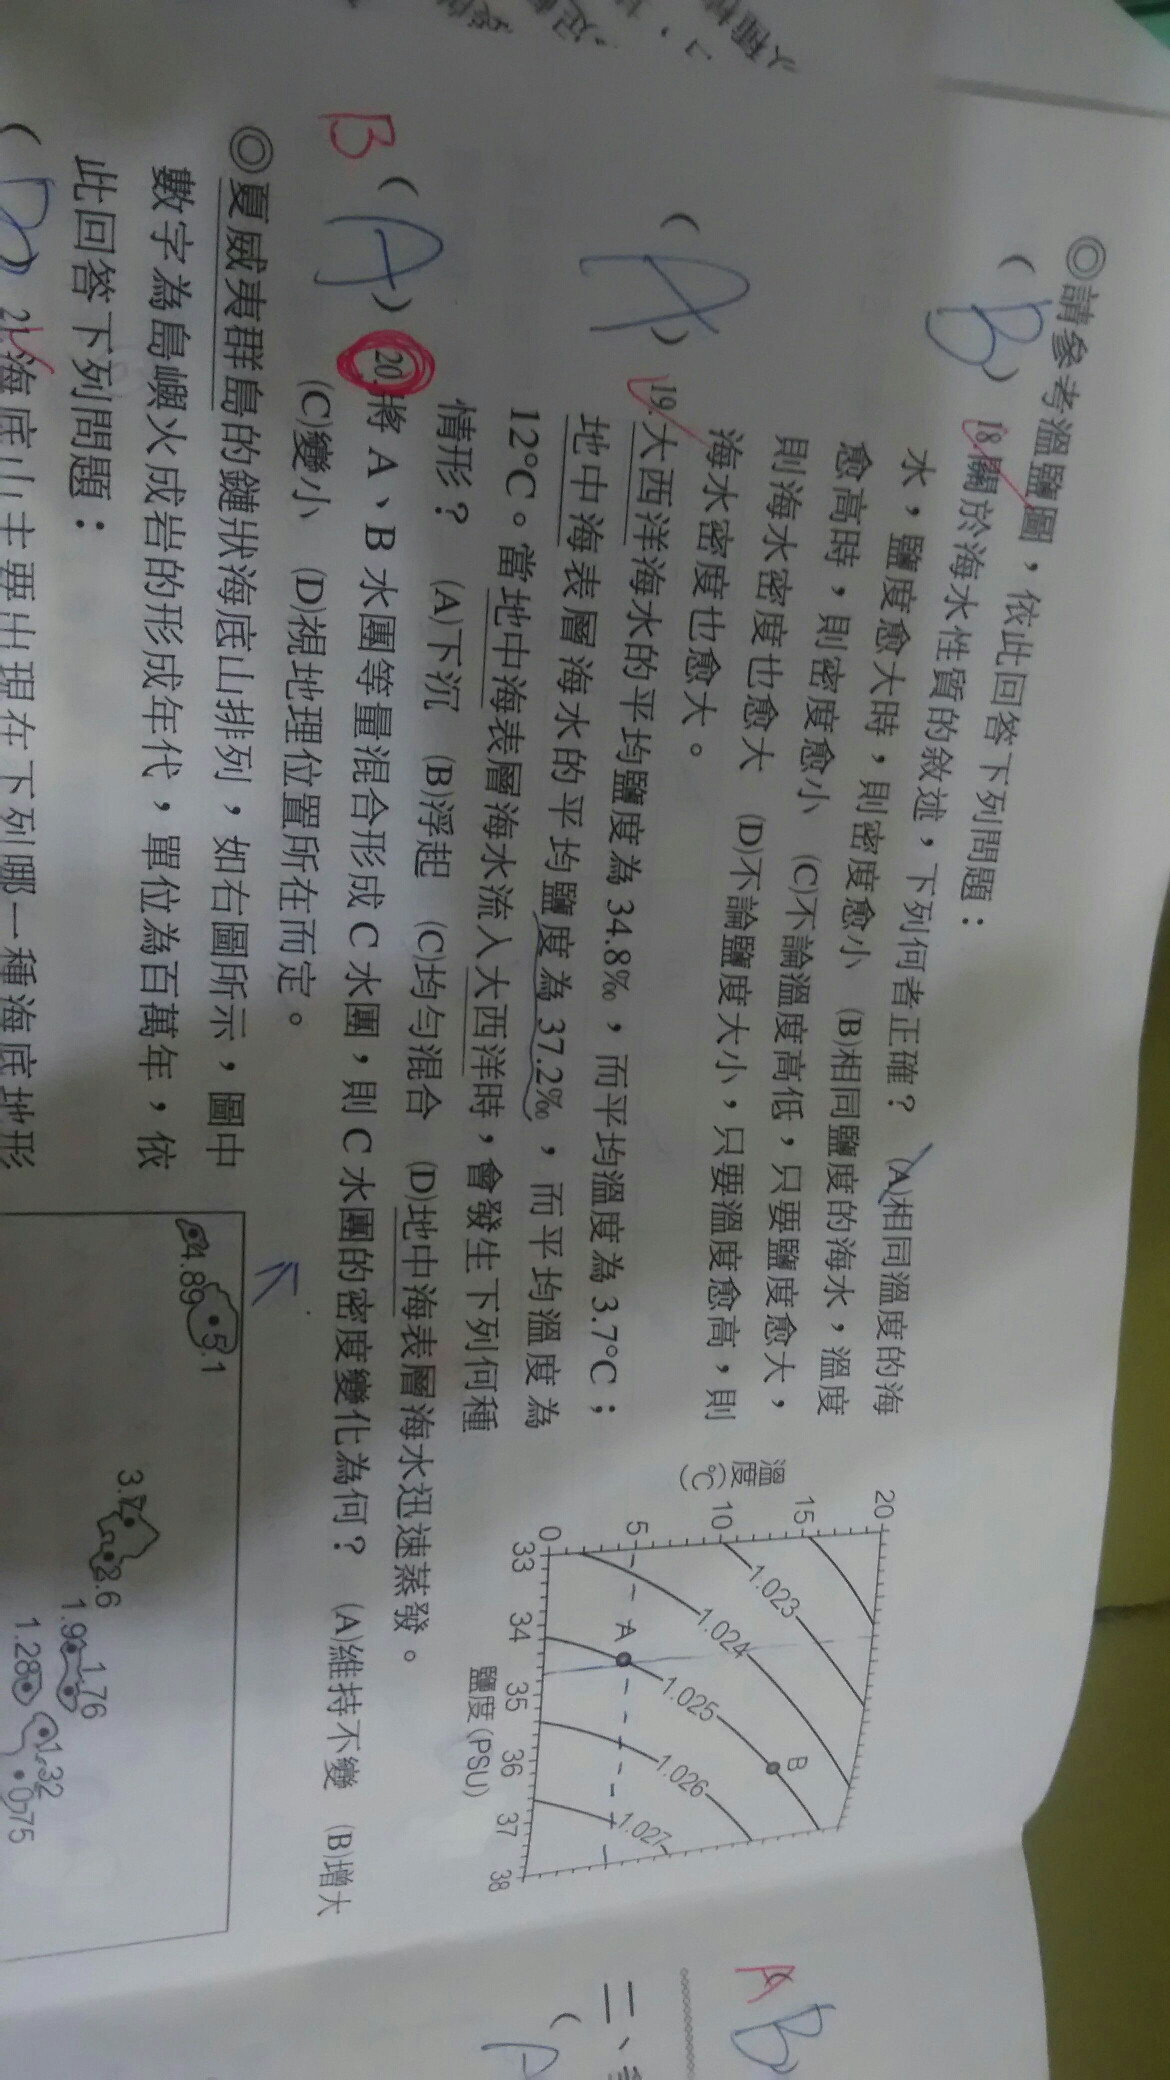 ◎請參考溫鹽圖，依此回答下列問題：
( B ) 18.關於海水性質的敘述，下列何者正確？ (A)相同溫度的海
水，鹽度愈大時，則密度愈小 (B)相同鹽度的海水，溫度
愈高時，則密度愈小 (C)不論溫度高低，只要鹽度愈大，
則海水密度也愈大 (D)不論鹽度大小，只要溫度愈高，則
海水密度也愈大。
( A ) 19.大西洋海水的平均鹽度為 34.8‰，而平均溫度為 3.7°C；
地中海表層海水的平均鹽度為 37.2‰，而平均溫度為
12°C。當地中海表層海水流入大西洋時，會發生下列何種
情形？ (A)下沉 (B)浮起 (C)均勻混合 (D)地中海表層海水迅速蒸發。
B ( A ) 20.將 A、B 水團等量混合形成 C 水團，則 C 水團的密度變化為何？ (A)維持不變 (B)增大
(C)變小 (D)視地理位置所在而定。
溫度(°C)
20
15
10
5
0
33 34 35 36 37 38
鹽度(PSU)
1.023
1.024
1.025
1.026
1.027
A
B
◎夏威夷群島的鏈狀海底山排列，如右圖所示，圖中
數字為島嶼火成岩的形成年代，單位為百萬年，依
此回答下列問題：
21.海底山主要出現在下列哪一種海底地形
4.89
5.1
3.7
2.6
1.9
1.76
1.28
1.32
0.75
A B
二、